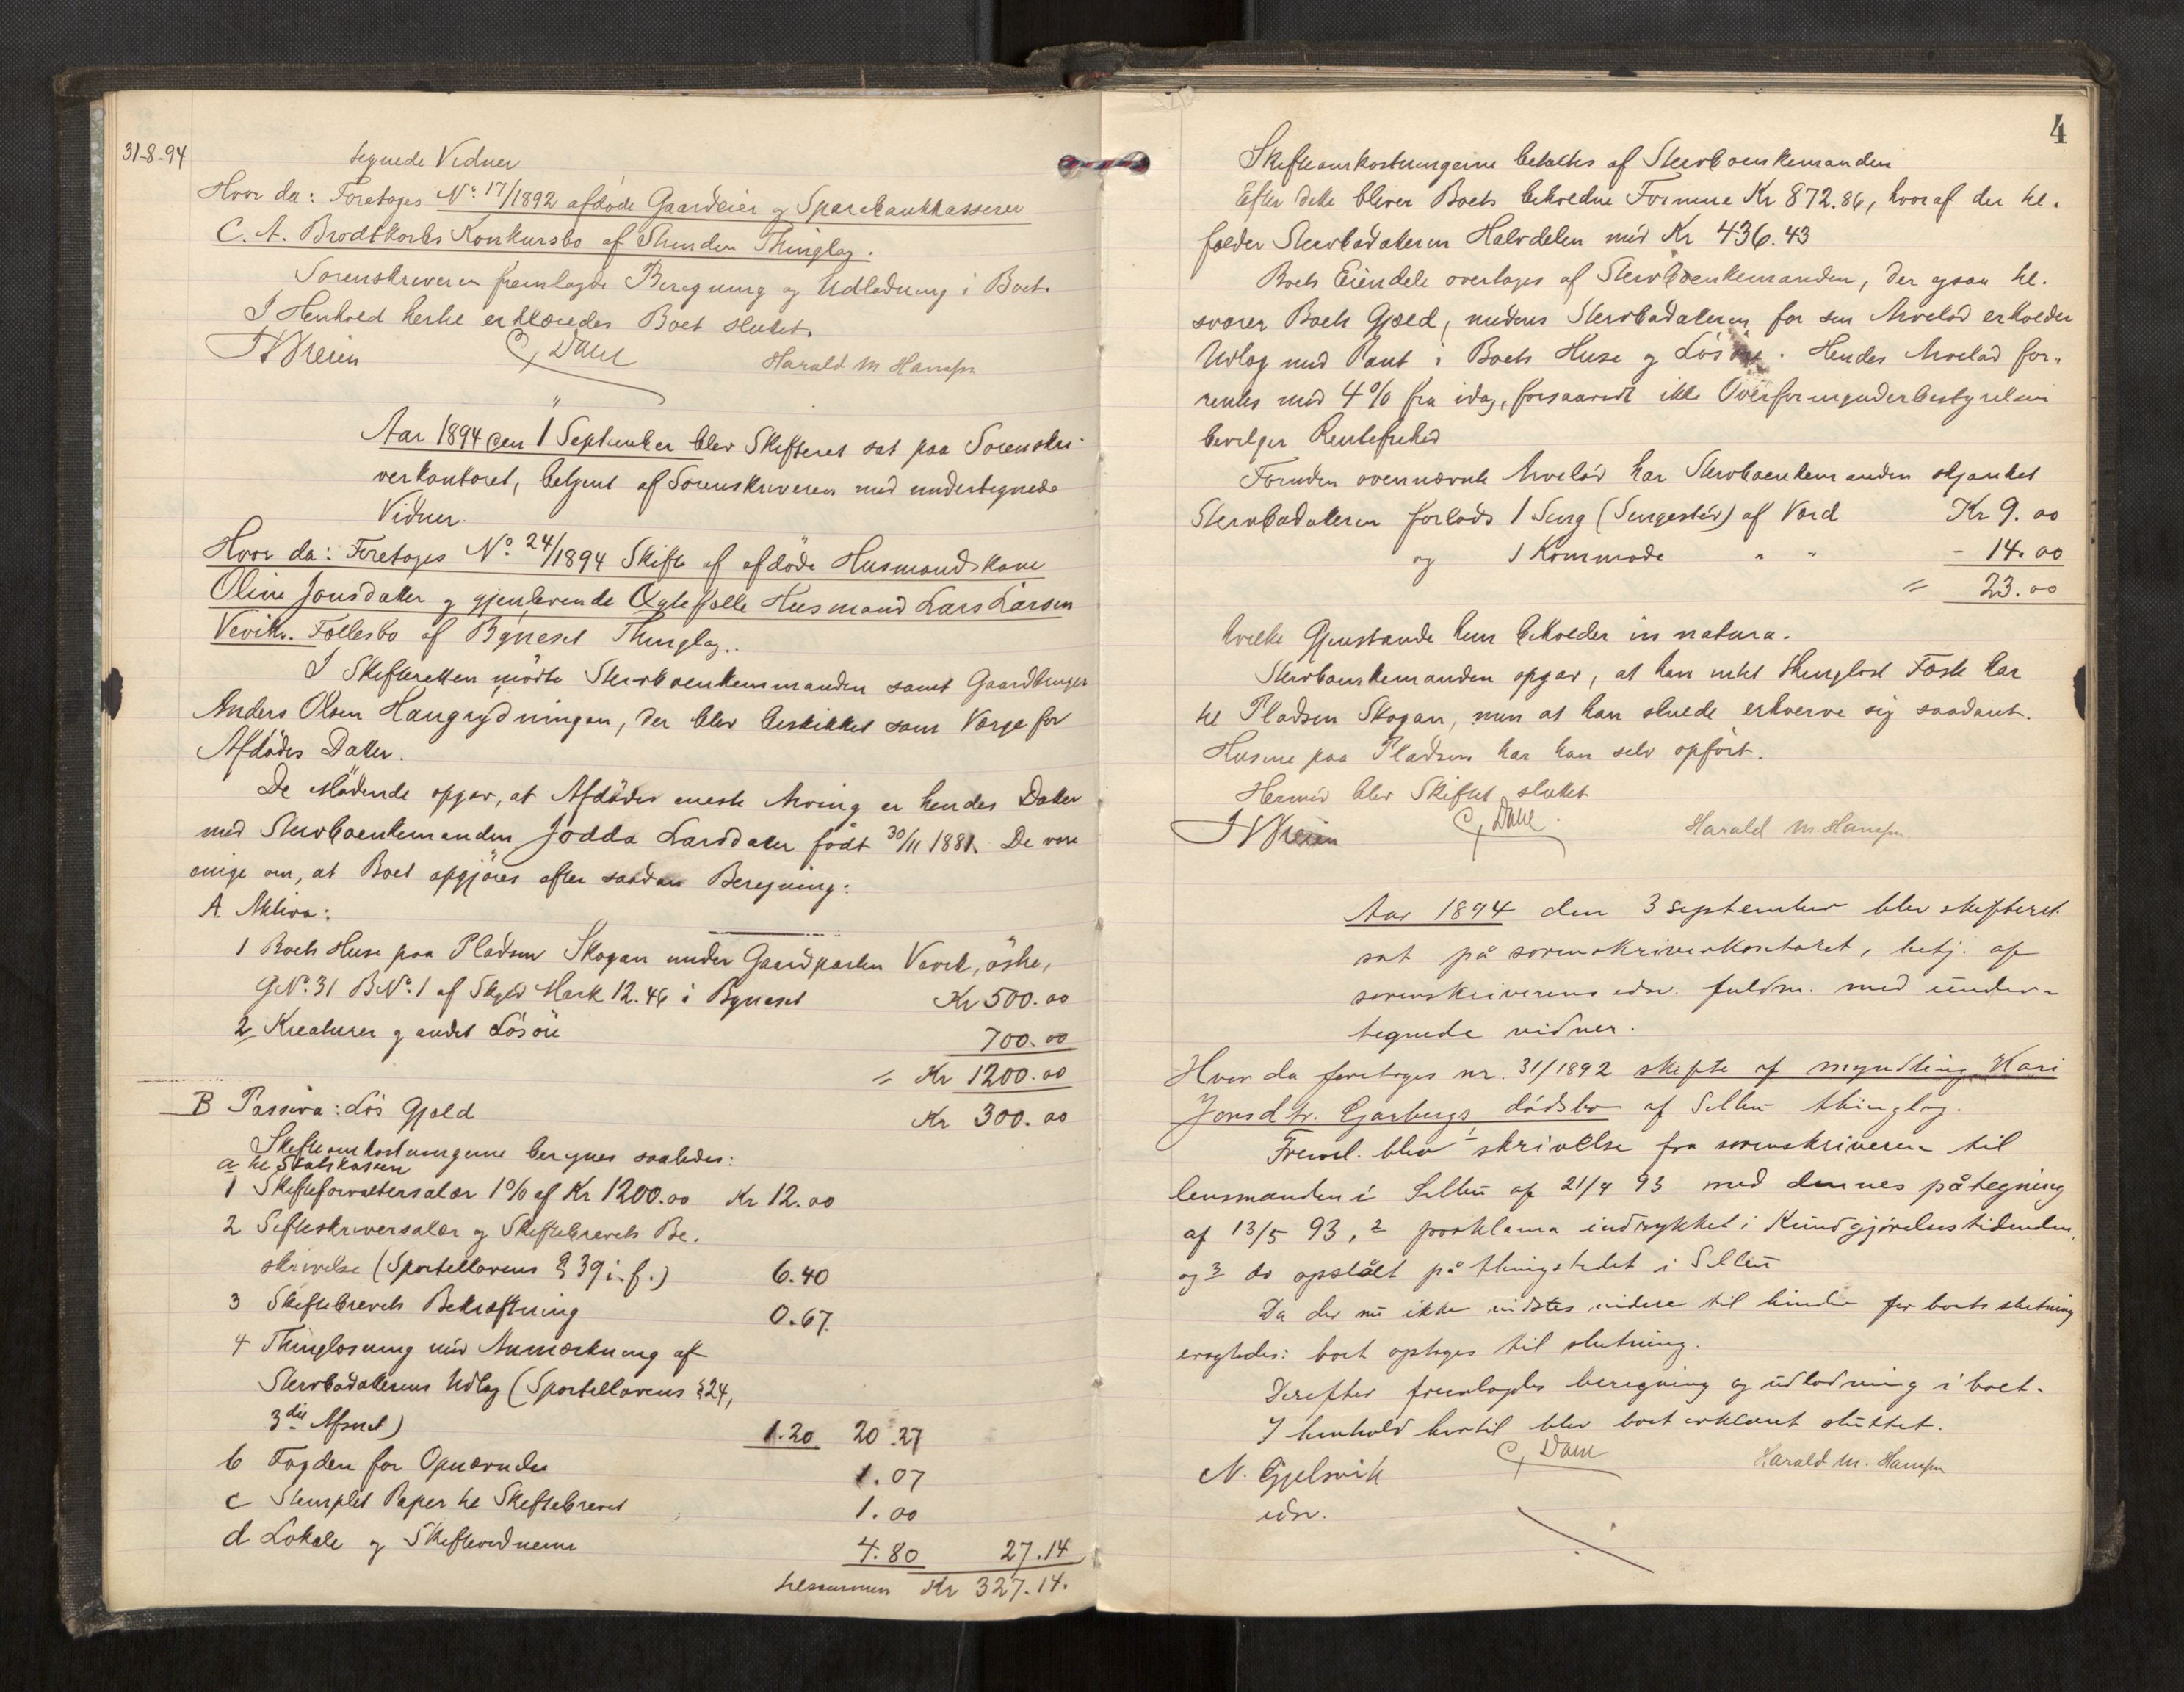 31-8-94
tegnede Vidner
Hvor da: Foretages No. 17/1892 afdöde Gaardeier og Sparebankkasserer
C. A. Brodtkorbs Konkursbo af Thinglag.
Sorenskriveren fremlagde Beregning og Udlodning i Boet.
I Henhold hertil erklæredes Boet sluttet.
C. Dahl
Harald M Hansen
Aar 1894 den 1 September blev Skifteret sat paa Sorenskri-
verkontoret, betjent af Sorenskriveren med undertegnede
Vidner.
Hvor da: Foretages No. 24/1894 Skifte af afdöde Husmandskone
Oline Jonsdatter og gjenlevende Ægtefælle Husmand Lars Larsen
Vevik. Fællesbo af Bynesset Thinglag.
I Skifteretten mödte Stervboenkemanden samt Gaardbruger
Anders Olsen Haugrydningen, der blev beskikket som Værge for
Afdödes Datter.
De Mödende opgav, at Afdödes eneste Arving er hendes Datter
med Stervboenkemanden Jodda Larsdatter födt 30/11 1881. De vare
enige om, at Boet opgjöres efter saadan Beregning:
A Aktiva:
1 Boets Huse paa Pladsen Skogan under Gaardparten Vevik, östre,
GNo. 31 BNo. 1 af Skyld Mark 12.46 i Bynesset Kr 500.00
2 Kreaturer og andet Lösöre 700.00
= Kr 1200.00
B Passiva: Lös Gjæld Kr 300.00
Skifteomkostningerne beregnes saaledes:
a til Statskassen
1 Skifteforvaltersalær 1% af Kr 1200.00 Kr 12.00
2 Skifteskriversalær og Skiftebrevets Be-
skrivelse (Sportellovens § 39 i. f.) 6.40
3 Skiftebrevets Bekræftning 0.67
4 Thinglæsning med Anmærkning af
Stervbodatterens Udlæg (Sportellovens § 24,
3die Afsnit) 1.20 20.27
b Fogden for Opnævnelse 1.07
c Stemplet Papir til Skiftebrevet 1.00
d Lokale og Skiftevidnerne 4.80 27.14
tilsammen Kr 327.14.
4
Skifteomkostningerne betaltes af Stervboenkemanden
Efter dette bliver Boets beholdne Formue Kr 872.86, hvoraf der til-
falder Stervbodatteren Halvdelen med Kr 436.43
Boets Eiendele overtages af Stervboenkemanden, der ogsaa til-
svarer Boets Gjæld, medens Stervbodatteren for sin Arvelod erholder
Udlæg med Pant i Boets Huse og Lösöre. Hendes Arvelod for-
rentes med 4% fra idag, forsaavidt ikke Overformynderbestyrelsen
bevilger Rentefrihed
Foruden ovennævnte Arvelod har Stervboenkemanden skjænket
Stervbodatteren forlods 1 Seng (Sengested) af Værd Kr 9.00
og 1 Kommode " " - 14.00
= 23.00
hvilke Gjenstande hun beholder in natura.
Stervboenkemanden opgav, at han intet thinglæst Fæste har
til Pladsen Skogan, men at han skulde erhverve sig saadant.
Husene paa Pladsen har han selv opfört.
Hermed blev Skiftet sluttet
C. Dahl.
Harald M. Hansen.
Aar 1894 den 3 september blev skifteret
sat på sorenskriverkontoret, betj. af
sorenskriverens edsv. fuldm. med under-
tegnede vidner.
Hvor da foretages nr. 31/1892 skifte af myndling Kari
Jonsdtr. Garbergs dödsbo af Selbu thinglag.
Freml. blev 1 skrivelse fra sorenskriveren til
lensmanden i Selbu af 21/4 93 med dennes påtegning
af 13/5 93, 2 proklama indrykket i Kundgjörelsestidenden,
og 3 do opslået på thingstedet i Selbu
Da der nu ikke vidstes videre til hinder for boets slutning
eragtedes: boet optages til slutning.
Derefter fremlagdes beregning og udlodning i boet.
I henhold hertil blev boet erklæret sluttet.
N. Gjelsvik
edsv.
C. Dahl
Harald M. Hansen